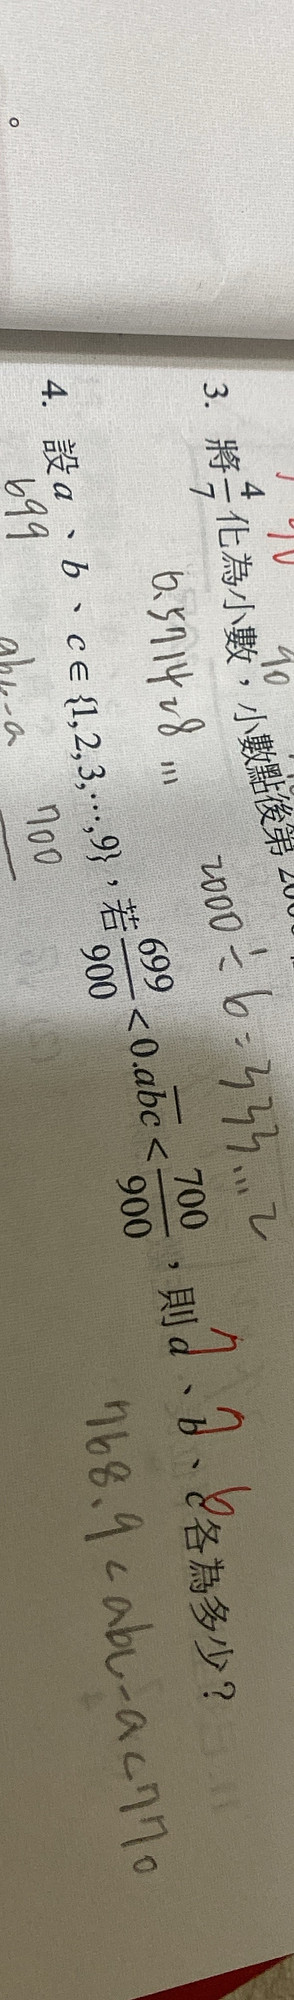 3. 將4/7化為小數，小數點後第
0.571428 ...
2000 ÷ 6 = 333...2
4. 設a、b、c∈{1,2,3,…,9}，若699/900<0.ab̅c̅<700/900，則a、b、c各為多少？
7 7 6
699
700
abc-a
768.9<abc-a<770